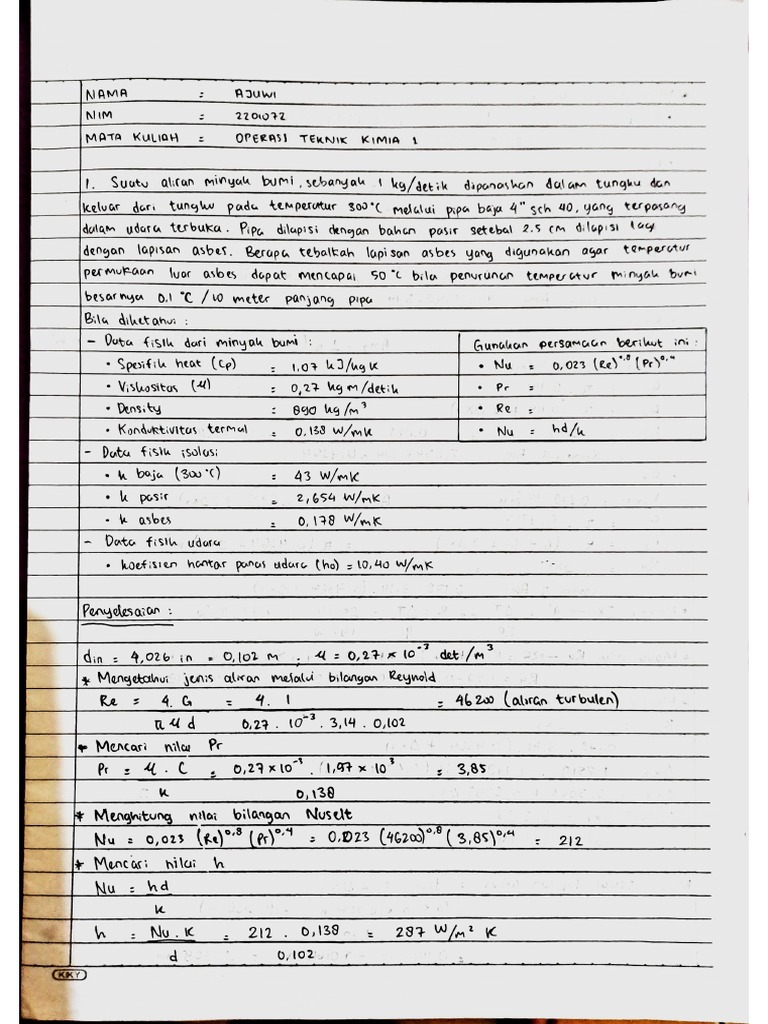 NAMA : AJUWI
NIM : 2201072
MATA KULIAH : OPERASI TEKNIK KIMIA 1
1. Suatu aliran minyak bumi, sebanyak 1 kg/detik dipanaskan dalam tungku dan
keluar dari tungku pada temperatur 300°C melalui pipa baja 4" sch 40, yang terpasang
dalam udara terbuka. Pipa dilapisi dengan bahan pasir setebal 2.5 cm dilapisi lagi
dengan lapisan asbes. Berapa tebalkah lapisan asbes yang digunakan agar temperatur
permukaan luar asbes dapat mencapai 50°C bila penurunan temperatur minyak bumi
besarnya 0.1 °C / 10 meter panjang pipa
Bila diketahui :
- Data fisik dari minyak bumi :
• Spesifik heat (Cp) = 1.07 kJ/kg K
• Viskositas (μ) = 0,27 kg m/detik
• Density = 890 kg/m³
• Konduktivitas termal = 0.138 W/mK
Gunakan persamaan berikut ini :
• Nu = 0,023 (Re)^0,8 (Pr)^0,4
• Pr =
• Re =
• Nu = hd/k
- Data fisik isolasi
• k baja (300°C) = 43 W/mK
• k pasir = 2,654 W/mK
• k asbes = 0,178 W/mK
- Data fisik udara
• koefisien hantar panas udara (ho) = 10,40 W/mK
Penyelesaian :
din = 4,026 in = 0,102 m , μ = 0,27 × 10⁻³ det/m³
* Mengetahui jenis aliran melalui bilangan Reynold
Re = 4. G = 4. 1 = 46200 (aliran turbulen)
π μ d 0,27 . 10⁻³ . 3,14 . 0,102
* Mencari nilai Pr
Pr = μ . C = 0,27×10⁻³ . (1,97 × 10³ = 3,85
k 0,138
* Menghitung nilai bilangan Nuselt
Nu = 0,023 (Re)^0,8 (Pr)^0,4 = 0,023 (46200)^0,8 (3,85)^0,4 = 212
* Mencari nilai h
Nu = hd
k
h = Nu. K = 212 . 0,138 = 287 W/m² K
d 0,102
KKY